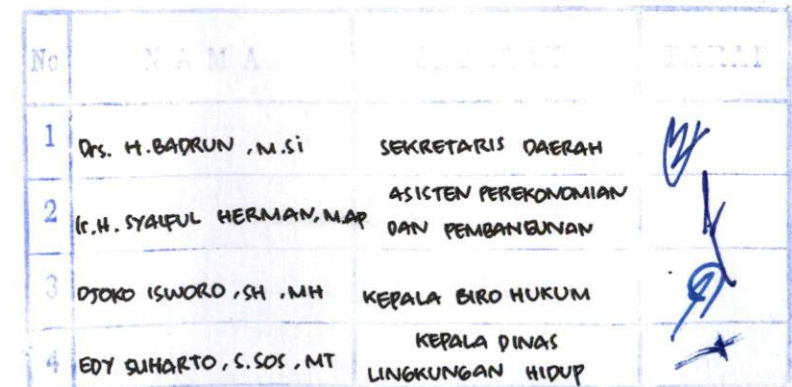 No NAMA JABATAN PARAF
1 Drs. H. BADRUN, M.Si SEKRETARIS DAERAH
2 Ir. H. SYAIFUL HERMAN, M.AP ASISTEN PEREKONOMIAN
DAN PEMBANGUNAN
3 DJOKO ISWORO, SH, MH KEPALA BIRO HUKUM
4 EDY SUHARTO, S.SOS, MT KEPALA DINAS
LINGKUNGAN HIDUP